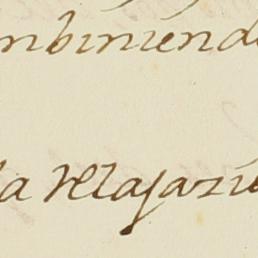 mbiniendo
la relajazi